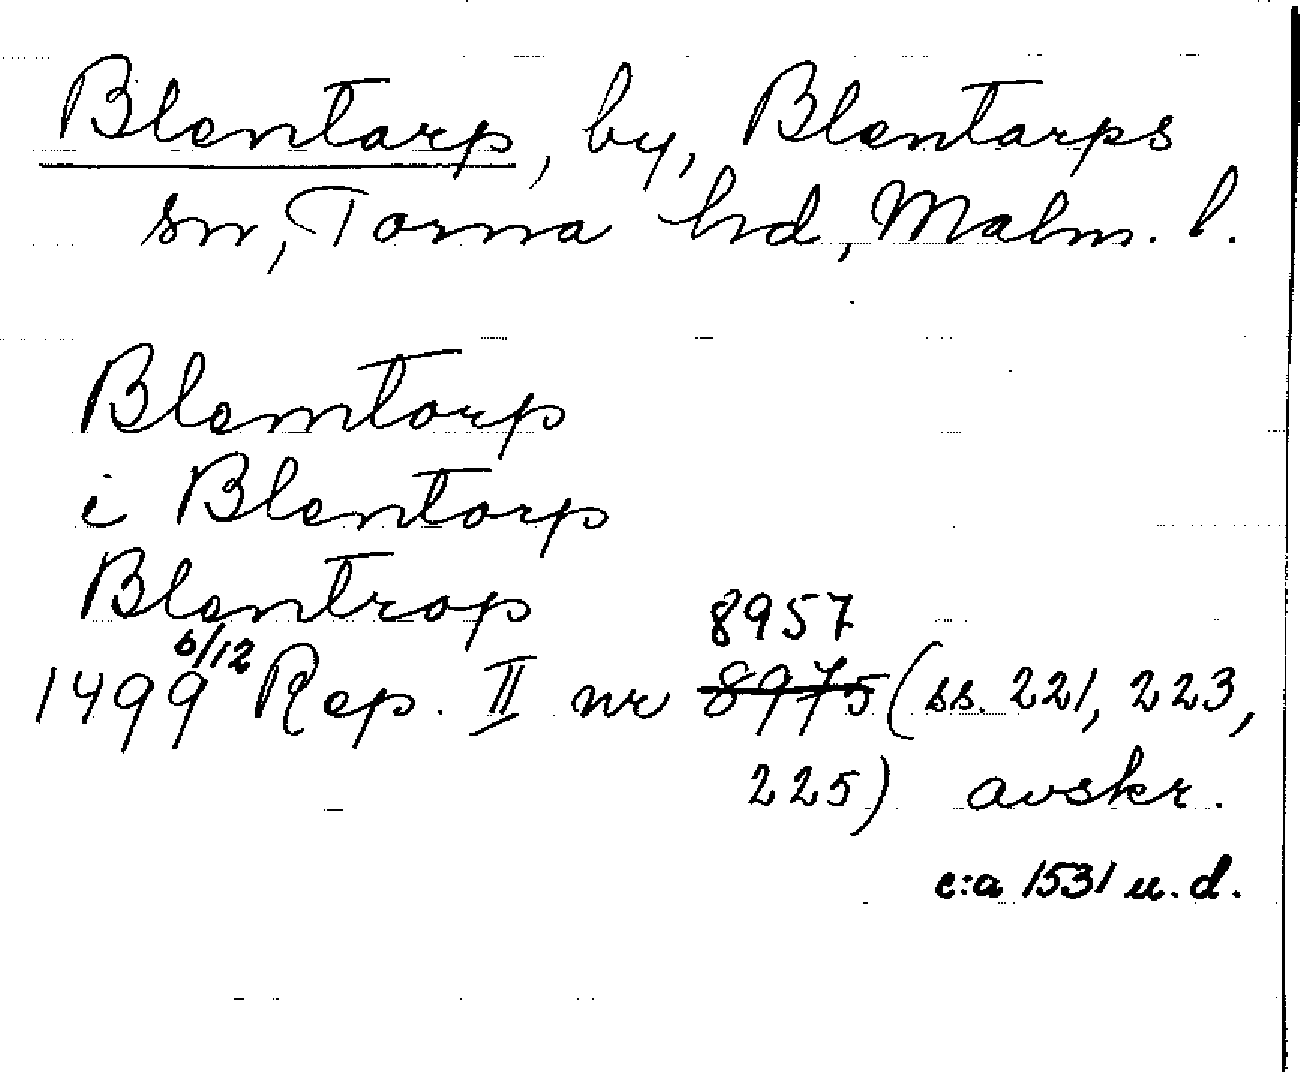 Blentarp, by, Blentarps
sn, Torna hd, Malm. l.
Blemtorp
i Blentorp
Blentrop
8957
1499 6/12 Rep. II nr 8975 (ss. 221, 223,
225) avskr.
c:a 1531 u.d.